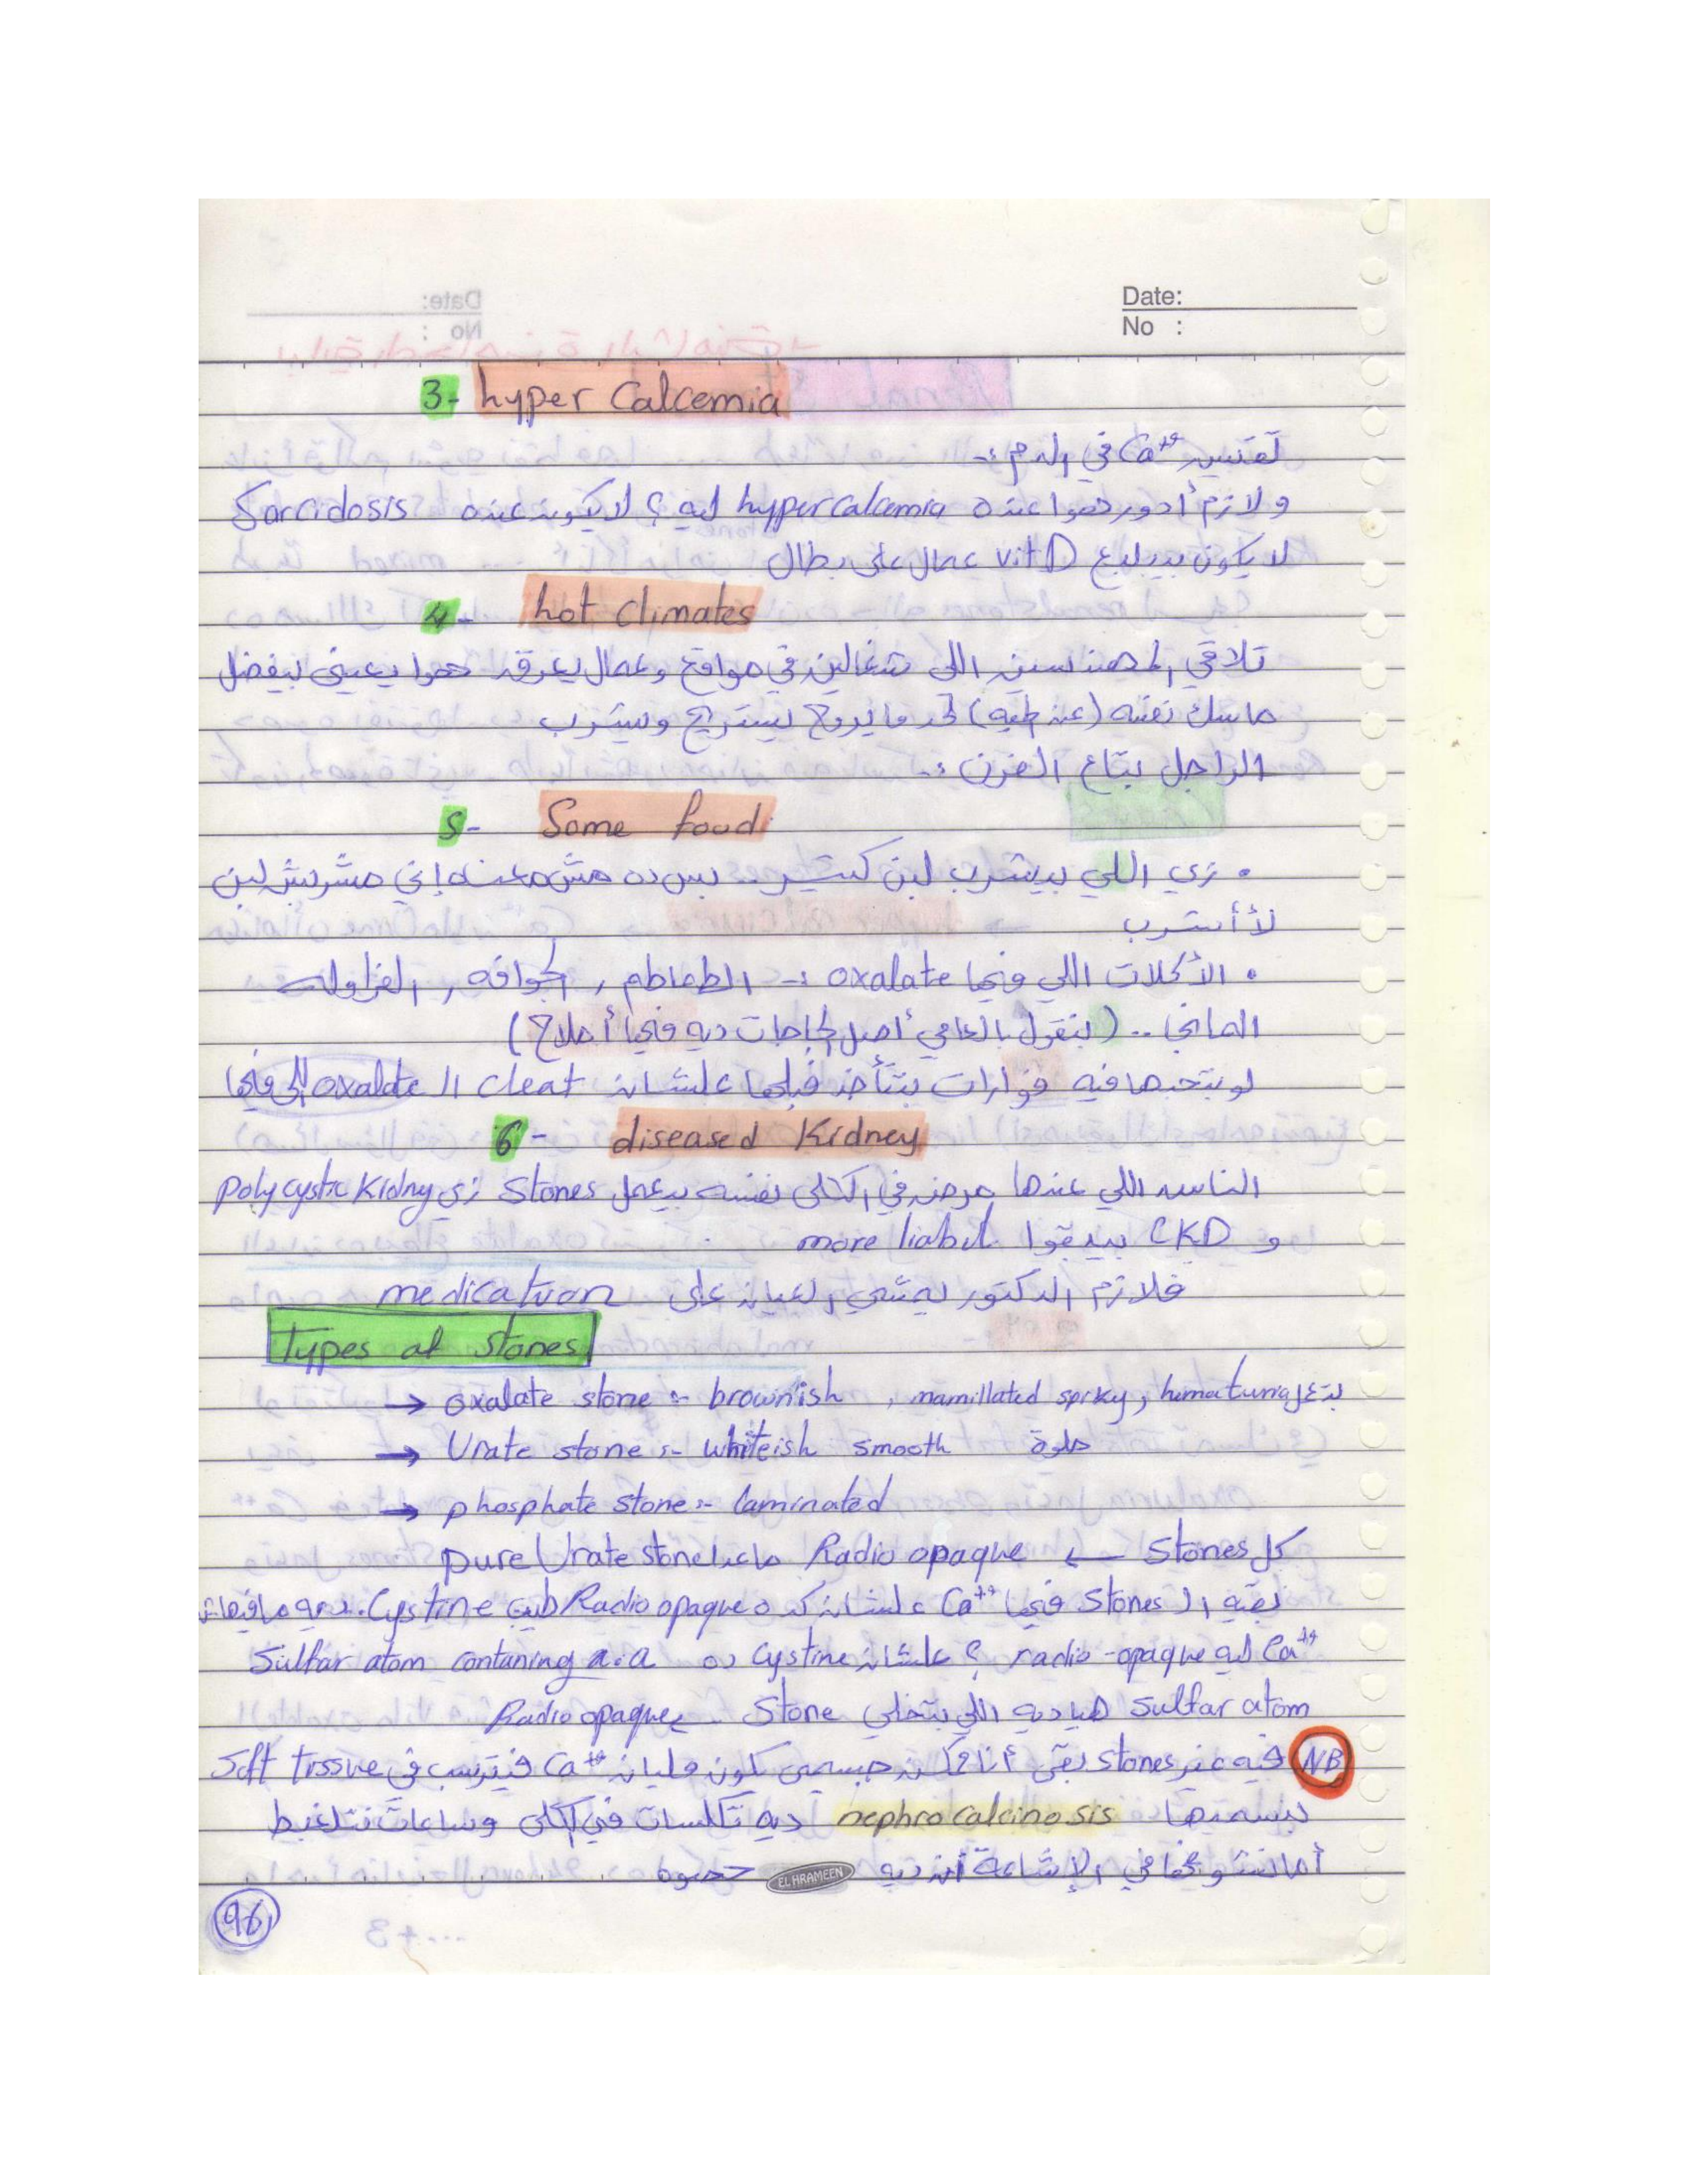 Date:
No :
3- hyper Calcemia
تقيس Ca++ في الدم :-
ولازم أدور هوا عنده hypercalcemia ليه ؟ لا يكون عنده Sarcidosis
لا يكون بيبلبع vit D عمال على بطال
4- hot climates
تلاقي المهندسين اللي شغالين في مواقع وعمال يعرق هوا يعيني بيفضل
ماسك نفسه (عند طبه) لحد ما يروح يستريح ويشرب
الراجل بتاع الفرن :-
5- Some food
• زي اللي بيشرب لبن كتير .. بس ده مش معناه إني مشربش لبن
لأ أشرب
• الأكلات اللي فيها oxalate :- الطماطم , الجوافه , الفراوله
المانجا .. (بنقول بالعامي أصل الحاجات ديه فيها أملاح)
لو بتحبها فيه فوارات بتتأخذ قبلها علشان cleat الـ oxalate اللي فيها
6- diseased Kidney
الناس اللي عندها مرض في الكلى نفسه بيعمل Stones زي Polycystic Kidny
و CKD بيبقوا more liabil
فلازم الدكتور يمشي العيان على medication
Types of Stones
→ oxalate stone :- brownish , mamillated spiky, hematuria بتعمل
→ Urate stone :- whiteish smooth حلوة
→ phosphate stone :- laminated
كل Stones ← Radio opaque ماعدا pure Urate stone
بقية الـ Stones فيها Ca++ علشان كده Radio opaque طيب Cystine . ديه مافيهاش
Ca++ ليه radio-opaque ؟ علشان Cystine ده Sulfar atom contaning a.a
Sulfar atom هيا ديه اللي بتخلي Stone Radio opaque
NB فيه غير stones بقى أنا ممكن جسمي يكون مليان Ca++ فيترسب في Soft tissue
بنسميها nephrocalcinosis ديه تكلسات في الكلى وساعات نتلغبط
أما نشوفها في الإشاعة أن ديه حصوه
EL HRAMEEN
96